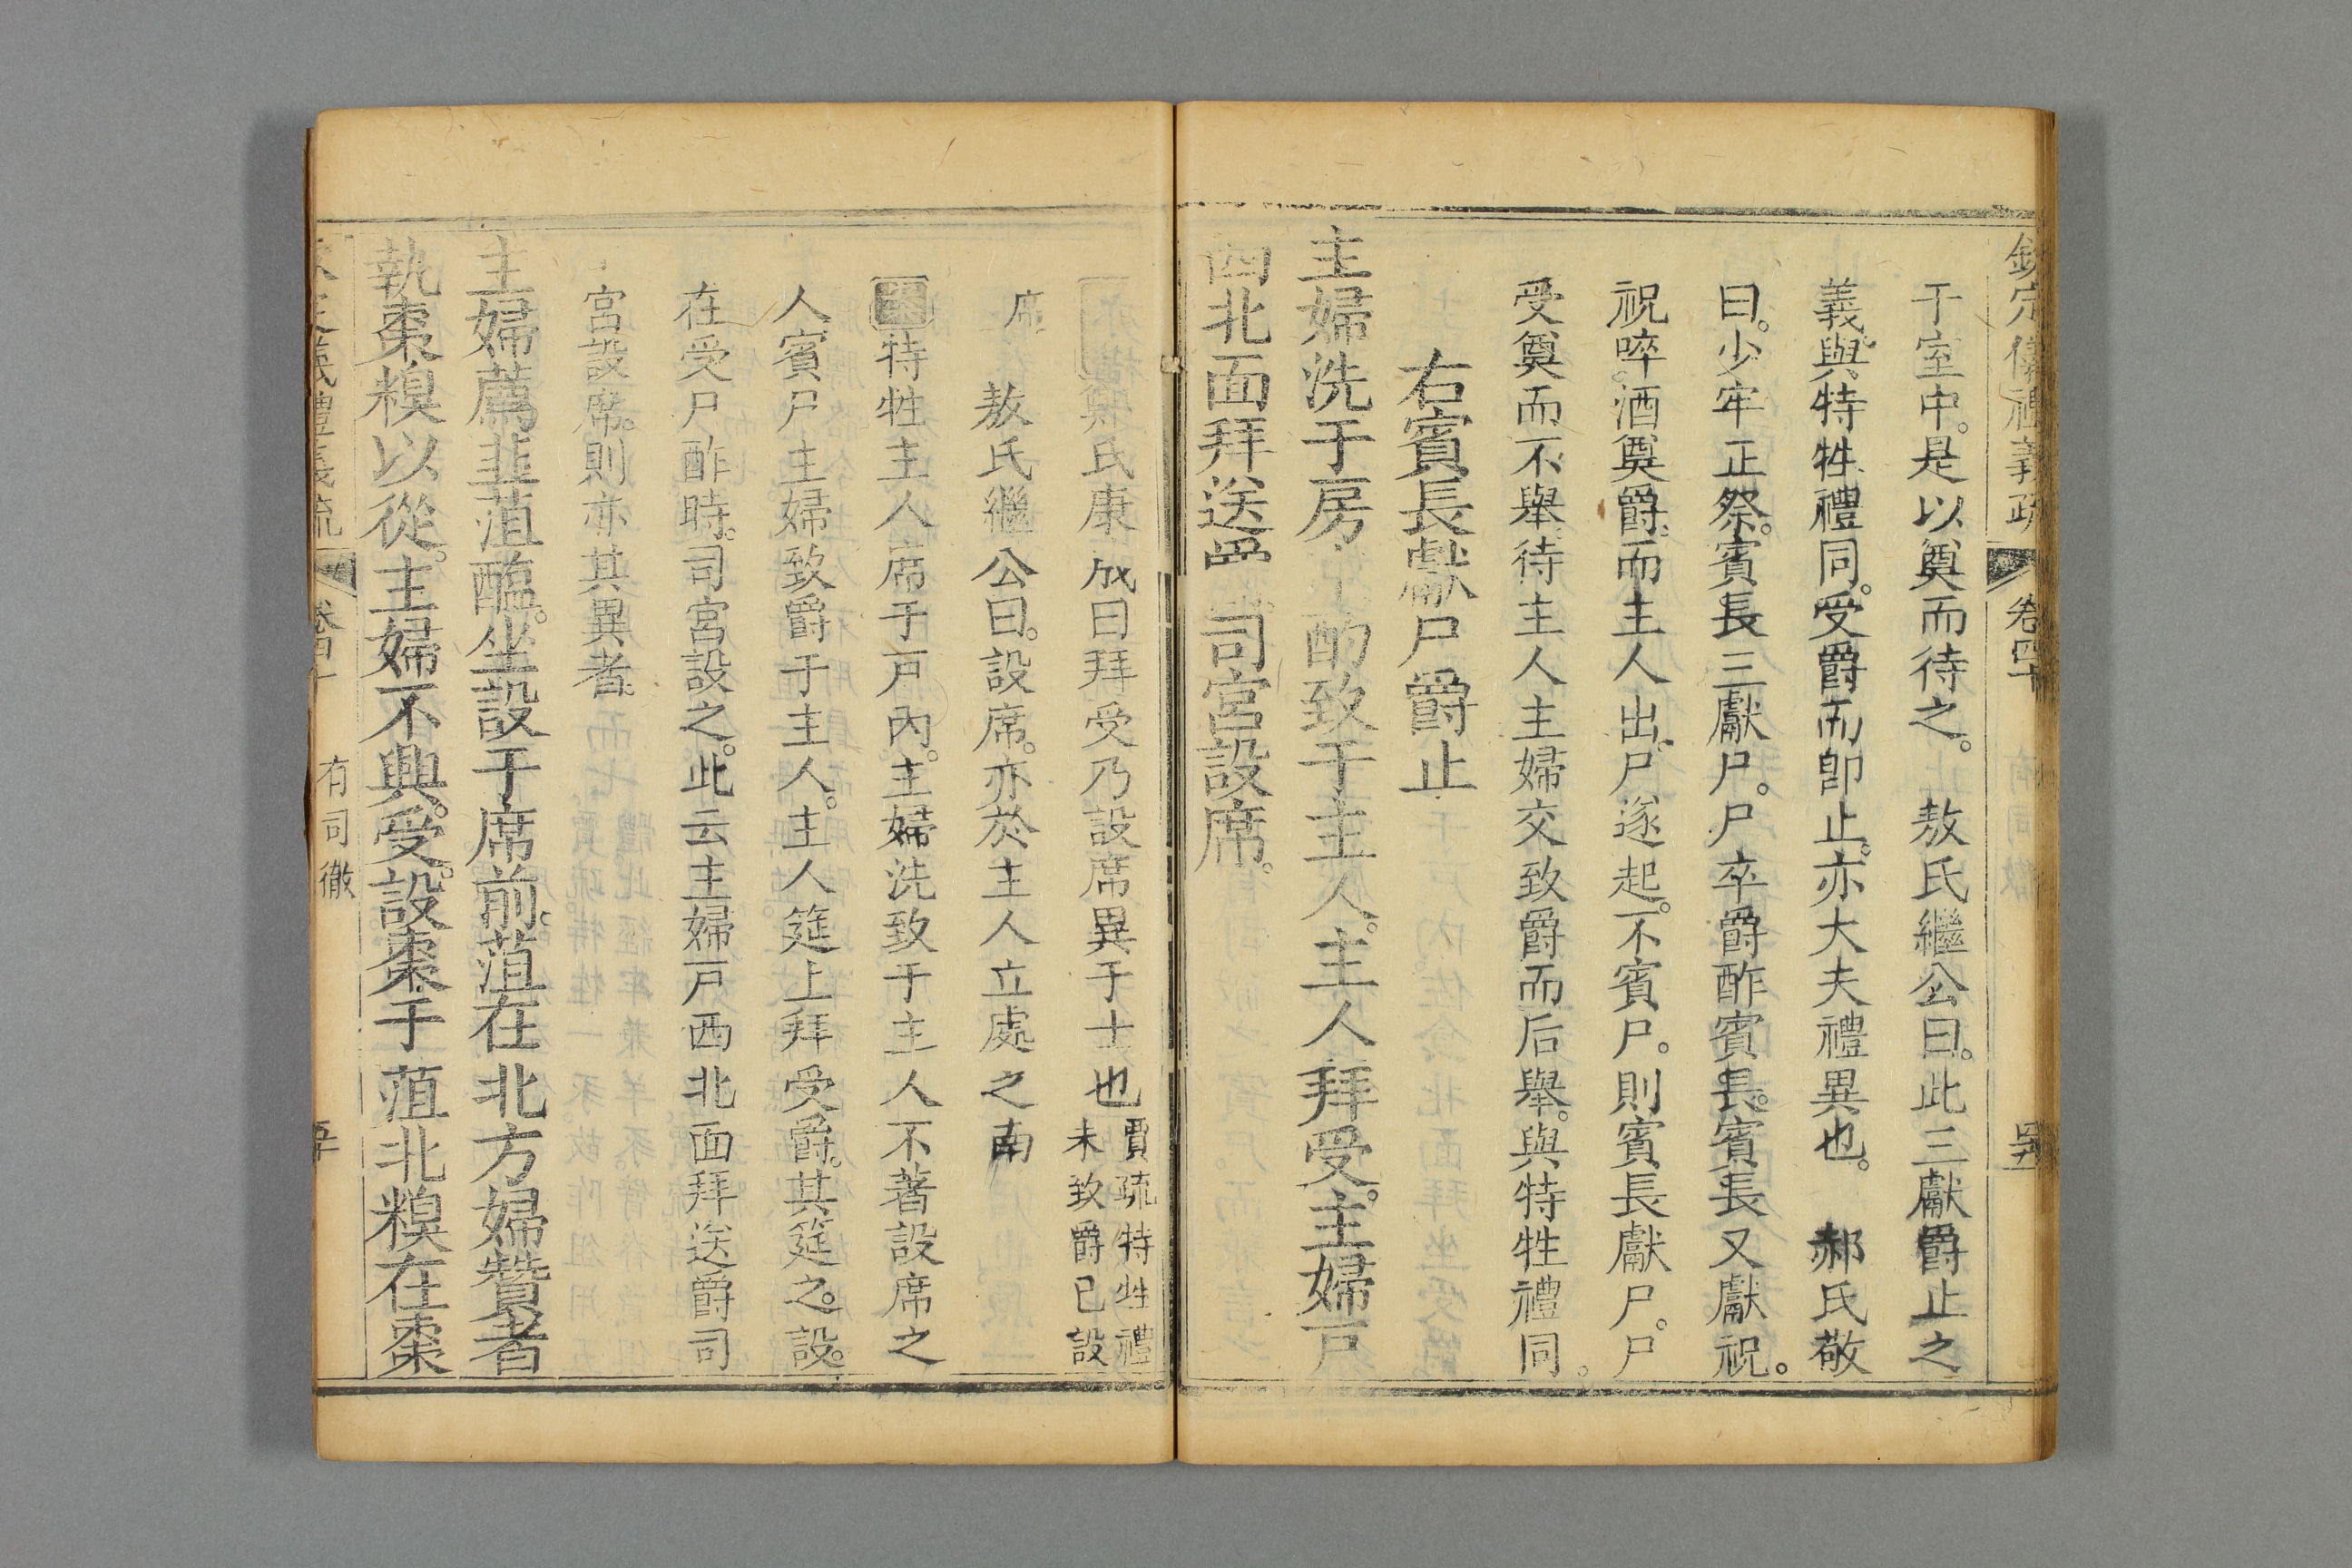 欽定儀禮義疏 卷四十
于室中。是以奠而待之。 敖氏繼公曰。此三獻爵止之
義。與特牲禮同。受爵而卽止。亦大夫禮異也。 郝氏敬
曰。少牢正祭。賓長三獻尸。尸卒爵酢賓長。賓長又獻祝。
祝啐酒奠爵。而主人出。尸遂起。不賓尸。則賓長獻尸。尸
受奠而不舉。待主人主婦交致爵而后舉。與特牲禮同。
右賓長獻尸爵止
主婦洗于房中酌致于主人。主人拜受。主婦戸
西北面拜送爵。司宮設席。
鄭氏康成曰拜受乃設席異于士也賈疏特牲禮未致爵已設
席 敖氏繼公曰。設席。亦於主人立處之南
案特牲主人席于戸內。主婦洗致于主人不著設席之
人賓尸主婦致爵于主人。主人筵上拜受爵。其筵之。設。
在受尸酢時。司宮設之。此云主婦戸西北面拜送爵司
宮設席。則亦其異者。
主婦薦韭菹醢。坐設于席前。菹在北方婦贊者
執棗糗以從。主婦不興。受。設棗于菹北糗在棗
義禮義疏 有司徹